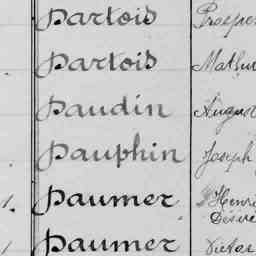 Dartois Prosper
Dartois Mathu
Daudin August
Dauphin Joseph
1. Daumer Henri
Désiré
Daumer Victor